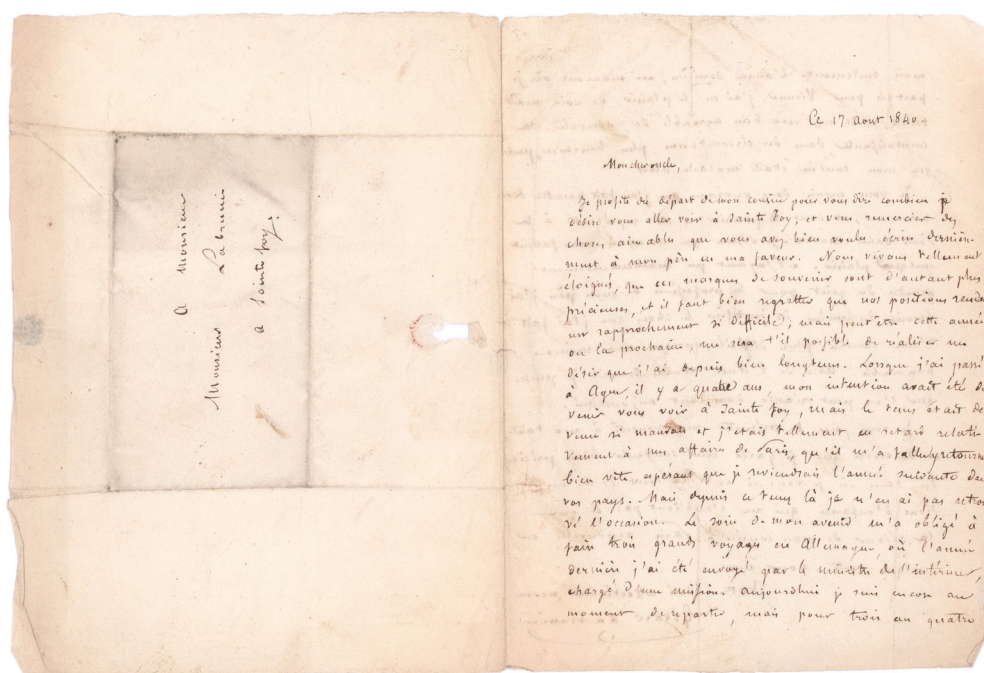 A Monsieur
Monsieur Labrunie
a Sainte foy.
Ce 17 aout 1840.
Mon cher oncle,
Je profite du départ de mon cousin pour vous dire combien je
désire vous aller voir à Sainte foy, et vous remercier des
choses aimables que vous avez bien voulu écrire derniè-
rement à mon père en ma faveur. Nous vivons tellement
éloignés, que ces marques de souvenir sont d'autant plus
précieuses, et il faut bien regretter que nos positions rendent
un rapprochement si difficile; mais peut être cette année
ou la prochaine me sera t'il possible de réaliser un
désir que j'ai depuis bien longtems. Lorsque j'ai passé
à Agen, il y a quatre ans, mon intention avait été de
venir vous voir à Sainte foy, mais le tems était de-
venu si mauvais et j'étais tellement en retard relati-
vement à mes affaires de Paris, qu'il m'a fallu y retourner
bien vite, espérant que je reviendrais l'année suivante dans
vos pays. Mais depuis ce tems là je n'en ai pas retrou-
vé l'occasion. Le soin de mon avenir m'a obligé à
faire trois grands voyages en Allemagne, où l'année
dernière j'ai été envoyé par le ministre de l'intérieur,
chargé d'une mission. aujourdhui je suis encore au
moment de repartir, mais pour trois ou quatre